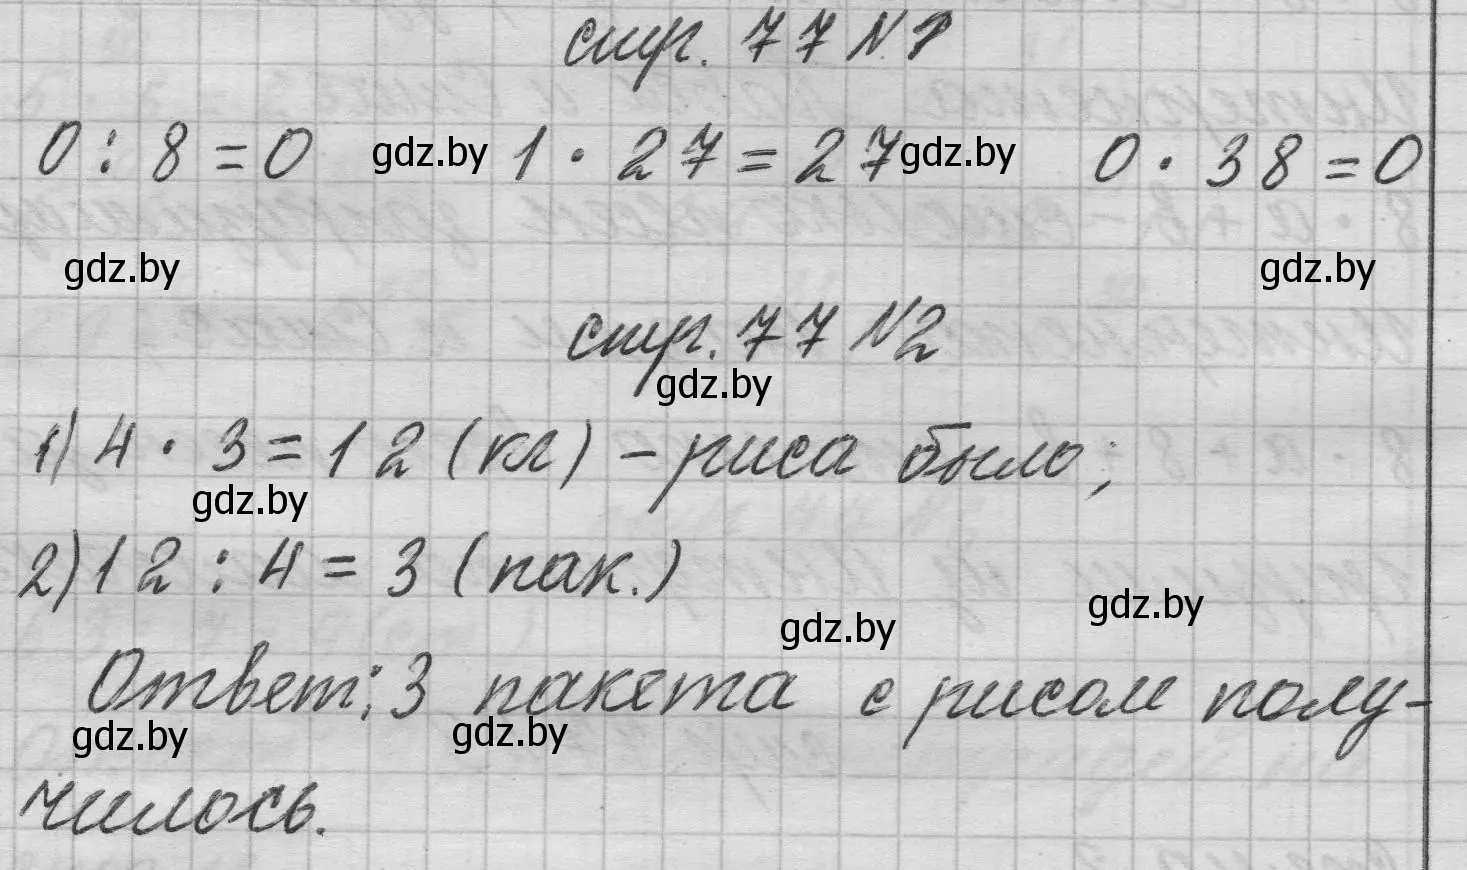 стр. 77 №1
0 : 8 = 0 gdz.by 1 · 27 = 27 gdz.by 0 · 38 = 0
gdz.by gdz.by
стр. 77 №2
gdz.by
1) 4 · 3 = 12 (кг) - риса было;
gdz.by
2) 12 : 4 = 3 (пак.)
gdz.by gdz.by
Ответ: 3 пакета с рисом полу-
gdz.by gdz.by
чилось.